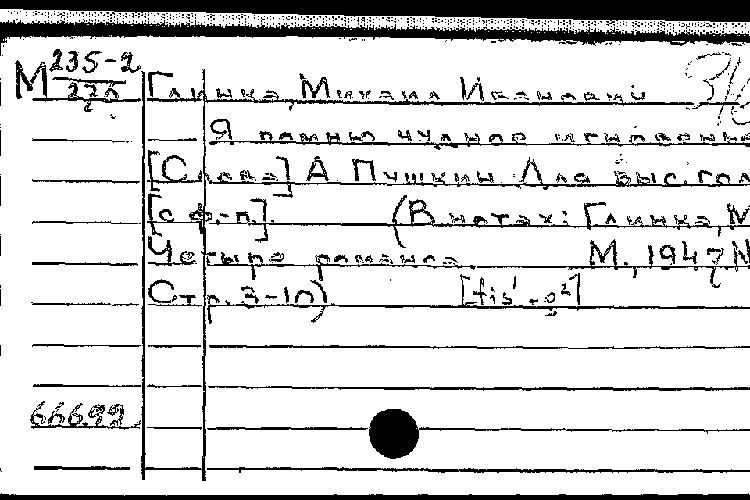 М 235-2
226
Глинка, Михаил Иванович
Я помню чудное мгновенье
[Слова] А Пушкин. Для выс. гол
[с ф.-п.]. (В нотах: Глинка, М
Четыре романса. М., 1947. №
Стр. 3-10) [fis¹-a²]
66699